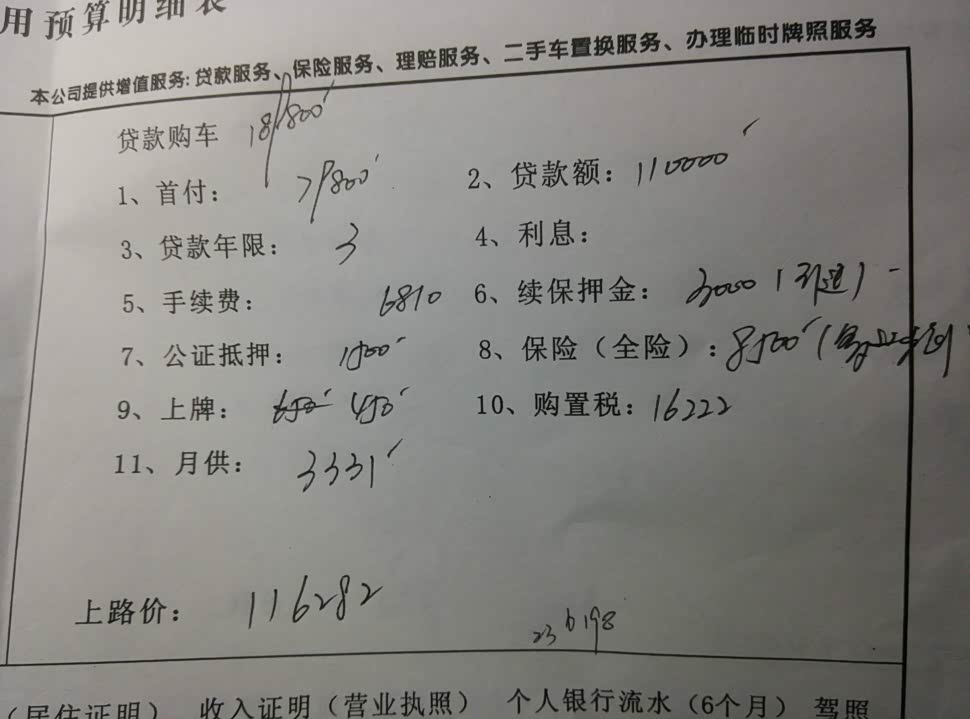 用预算明细表
本公司提供增值服务: 贷款服务、保险服务、理赔服务、二手车置换服务、办理临时牌照服务
贷款购车 181800
1、首付: 71800 2、贷款额: 110000
3、贷款年限: 3 4、利息:
5、手续费: 6810 6、续保押金: 3000 (引进)
7、公证抵押: 1500 8、保险(全险): 8500
9、上牌: 650 450 10、购置税: 16222
11、月供: 3331
上路价: 116282
23 6198
(居住证明) 收入证明(营业执照) 个人银行流水(6个月) 驾照